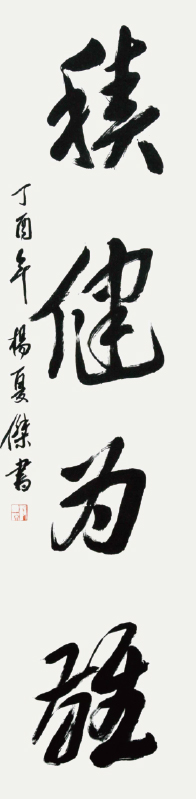 積健为雄
丁酉年楊夏傑書